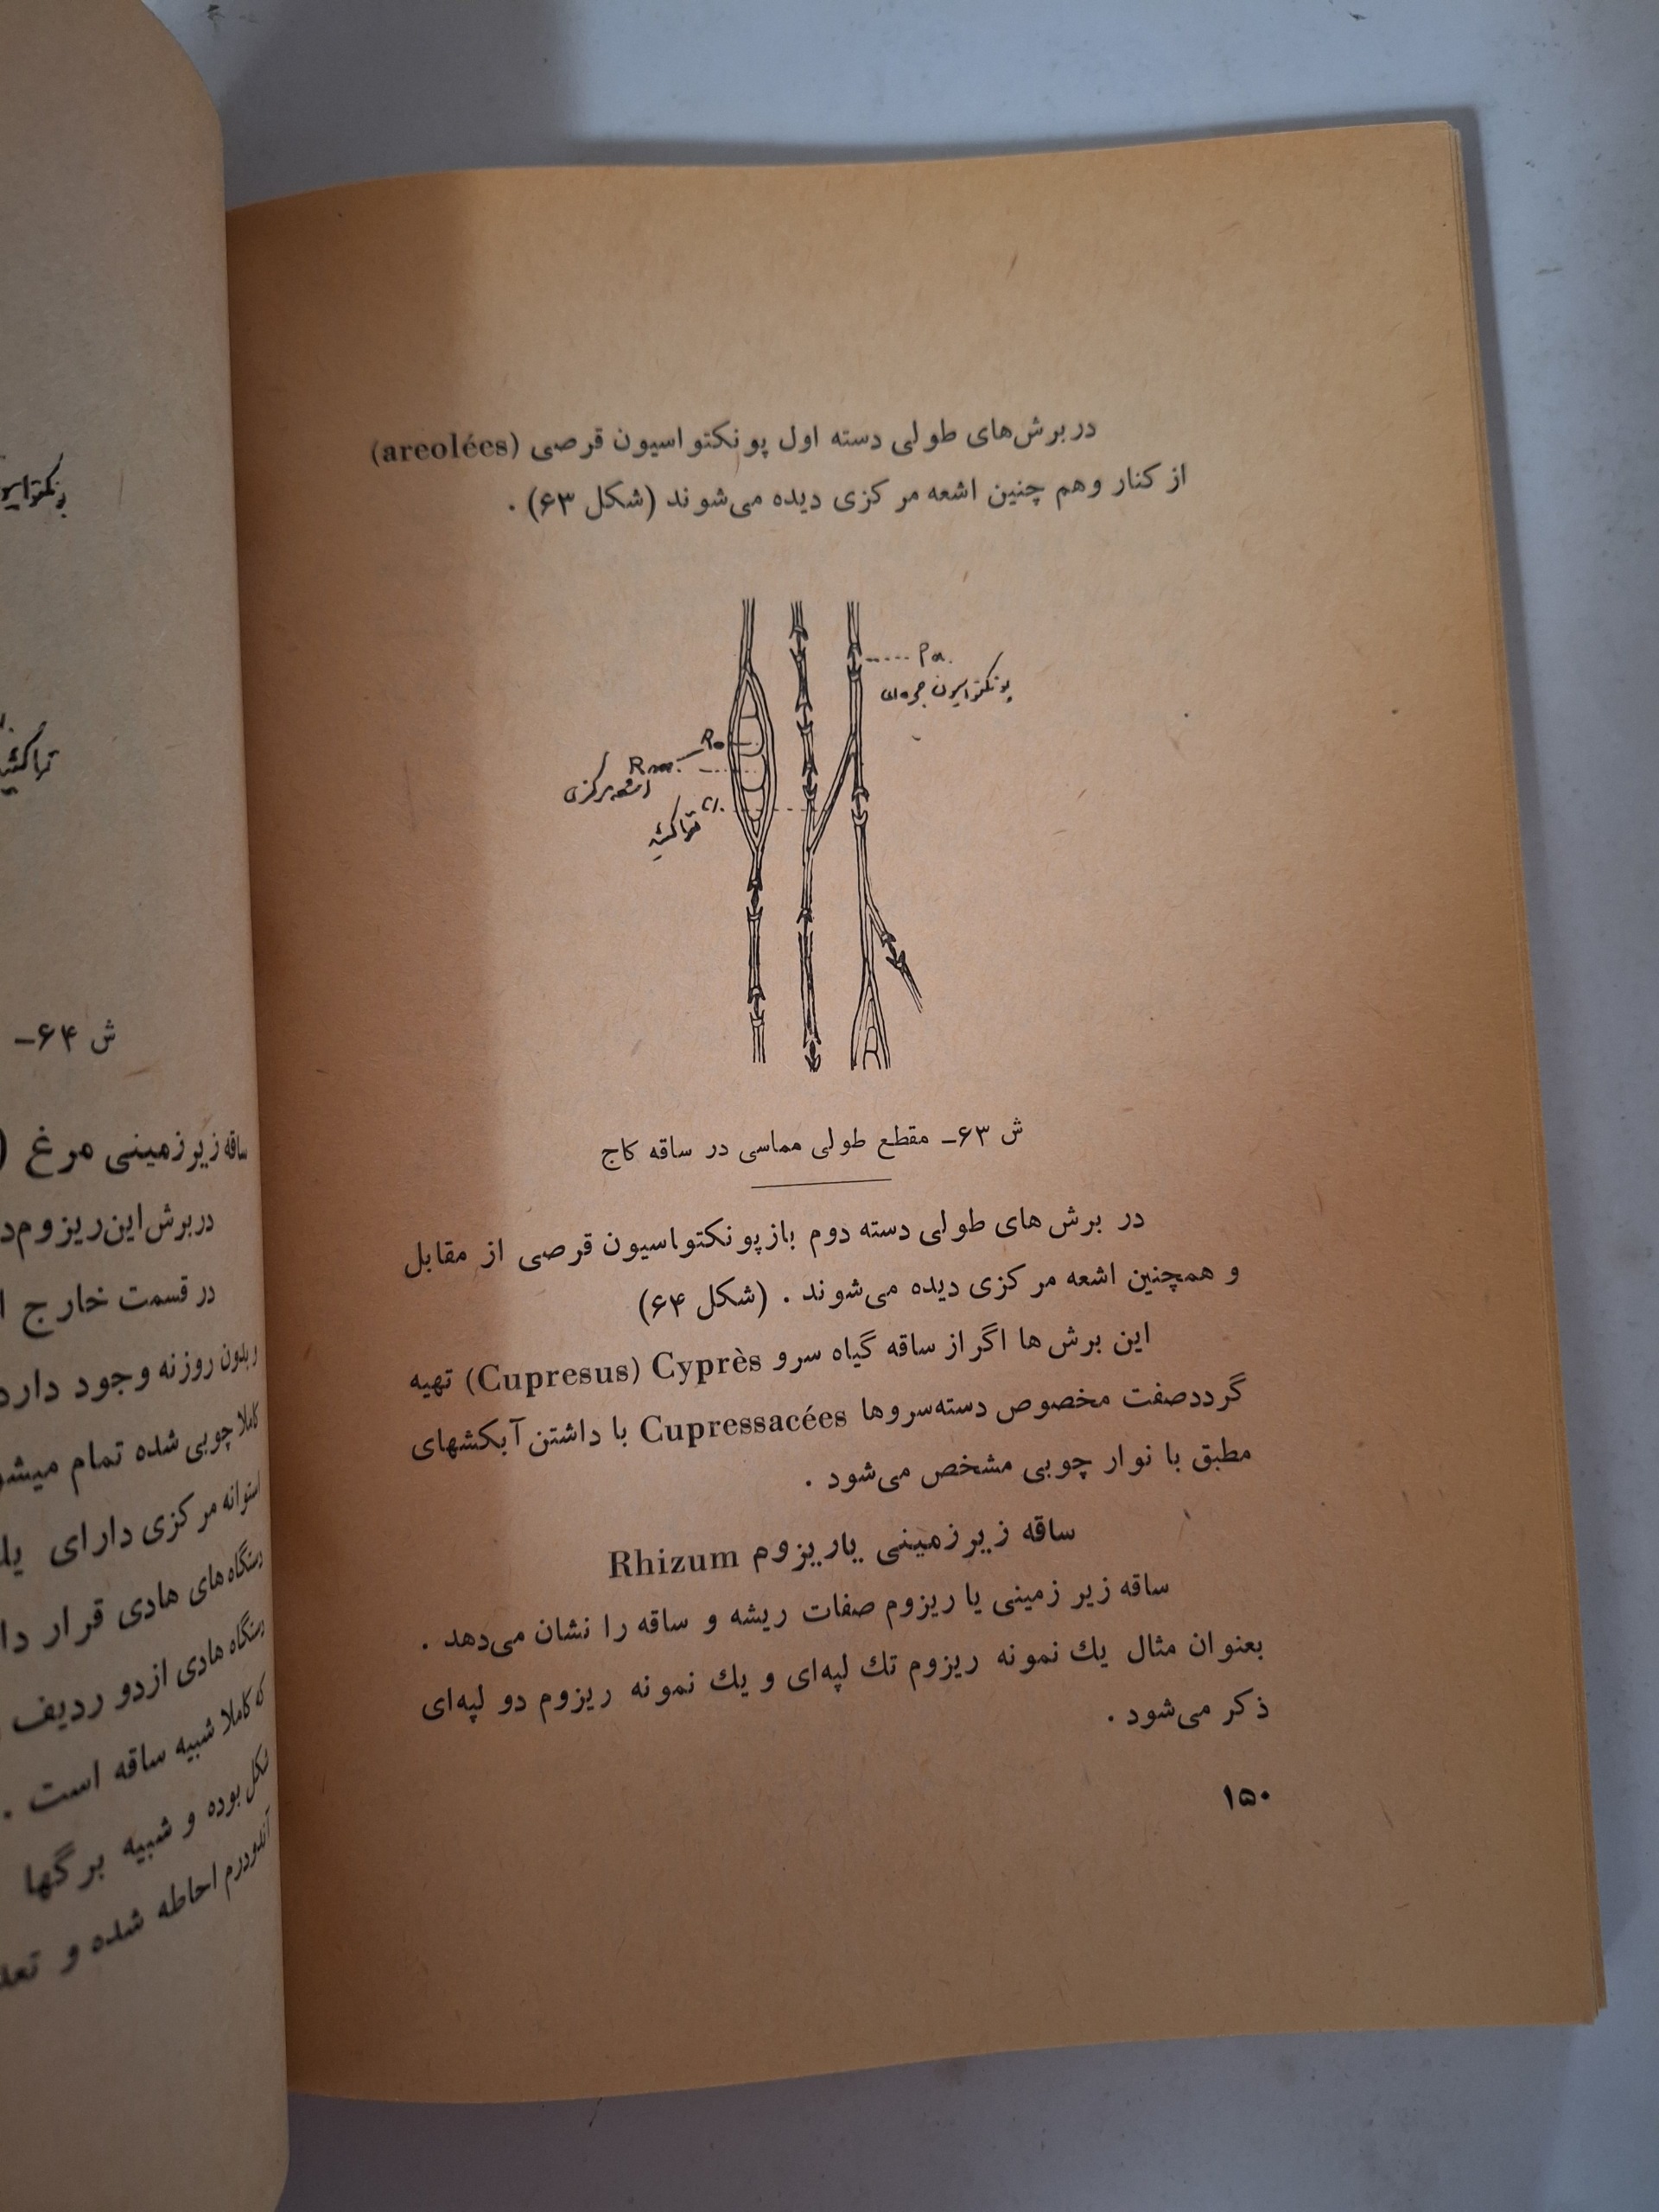 در برش‌های طولی دسته اول پونکتواسیون قرصی (areolées)
از کنار وهم چنین اشعه مرکزی دیده می‌شوند (شکل ۶۳) .
Pa.
پونکتواسیون
R
اشعه مرکزی
تراکئید
ش ۶۳- مقطع طولی مماسی در ساقه کاج
در برش های طولی دسته دوم بازپونکتواسیون قرصی از مقابل
و همچنین اشعه مرکزی دیده می‌شوند . (شکل ۶۴)
این برش ها اگر از ساقه گیاه سرو Cyprès (Cupresus) تهیه
گرددصفت مخصوص دسته‌سروها Cupressacées با داشتن آبکشهای
مطبق با نوار چوبی مشخص می‌شود .
ساقه زیرزمینی یاریزوم Rhizum
ساقه زیر زمینی یا ریزوم صفات ریشه و ساقه را نشان می‌دهد .
بعنوان مثال یك نمونه ریزوم تك لپه‌ای و یك نمونه ریزوم دو لپه‌ای
ذکر می‌شود .
۱۵۰
ش ۶۴-
ساقه زیرزمینی مرغ (
در برش این ریزوم
در قسمت خارج
و بدون روزنه وجود دارد
کاملا چوبی شده تمام
استوانه مرکزی دارای
دستگاه های هادی قرار
دستگاه هادی ازدو ردیف
که کاملا شبیه ساقه است .
شکل بوده و شبیه برگها
آندودرم احاطه شده و